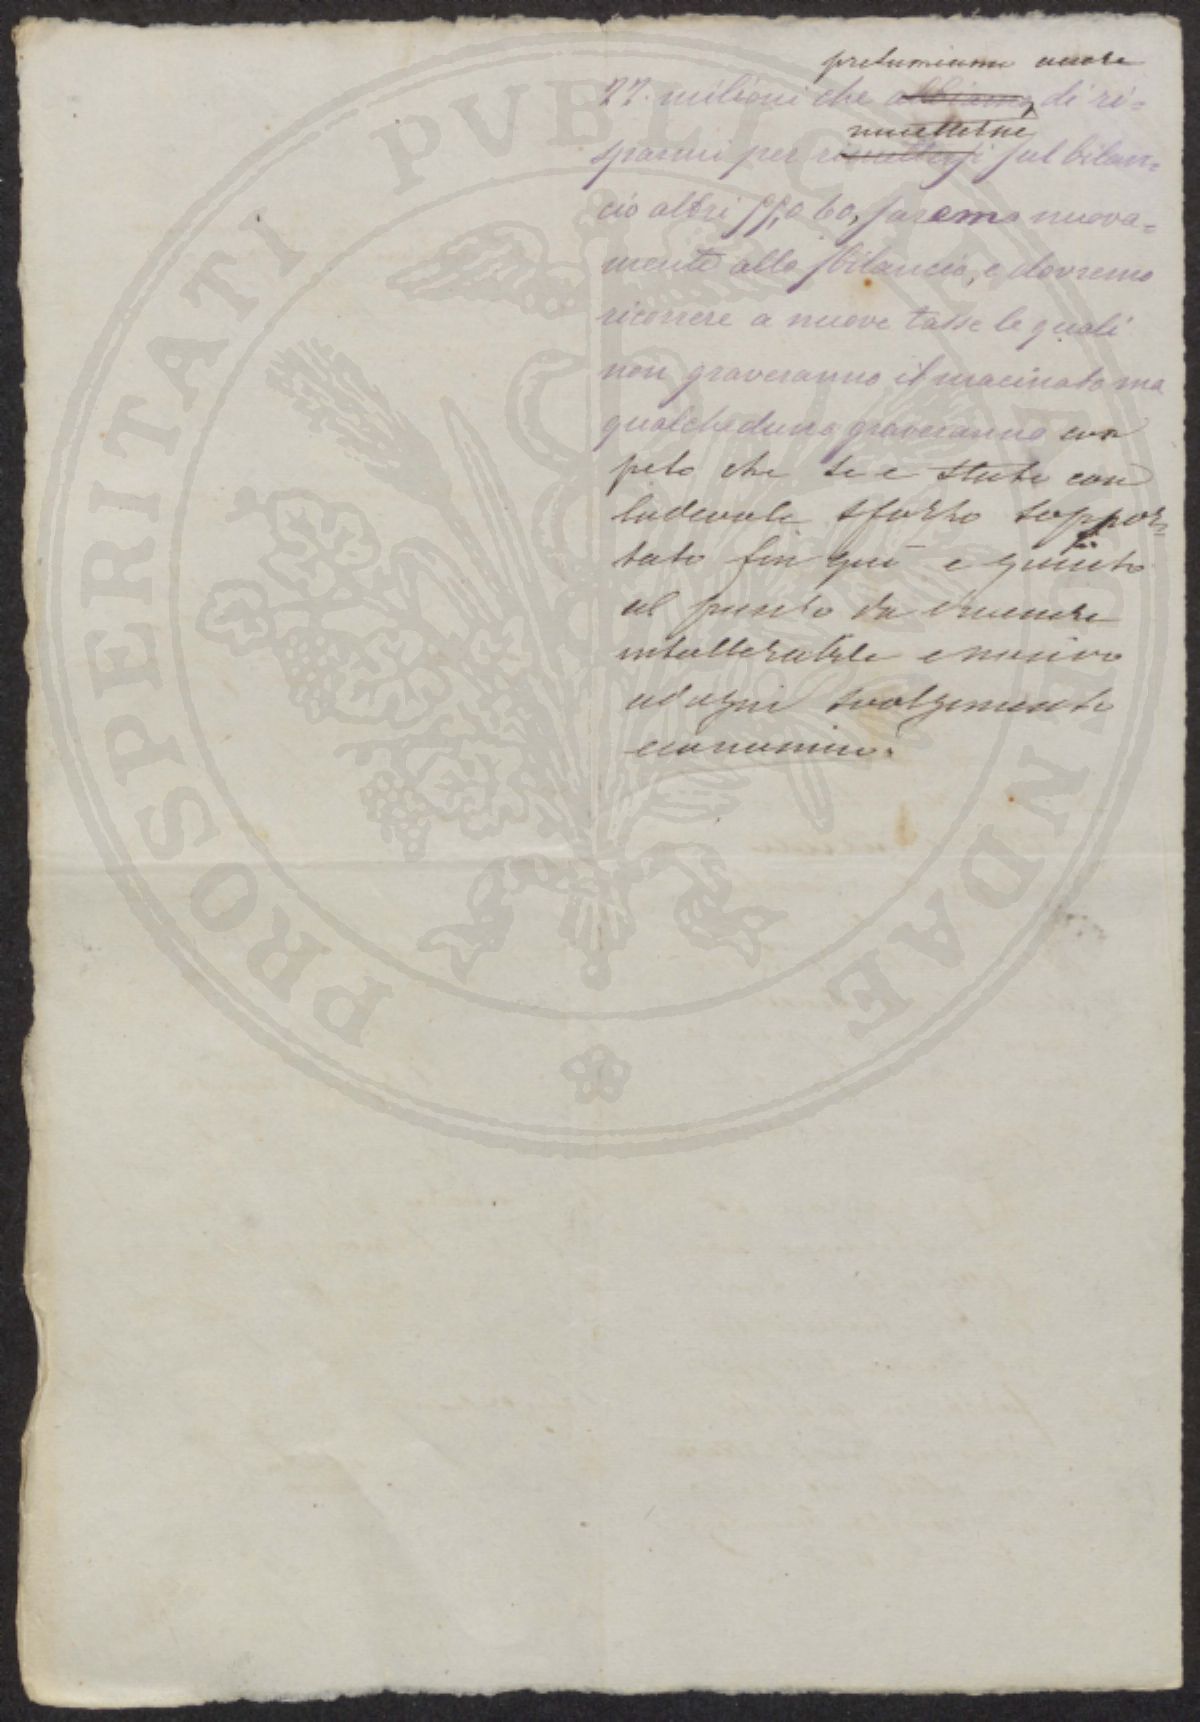 presumiamo avere
22 milioni che abbiamo, di ri=
metterne
sparmi per rimettersi sul bilan=
cio altri 55, o 60, saremo nuova=
mente allo sbilancio, e dovremo
ricorrere a nuove tasse le quali
non graveranno il macinato ma
qualcheduno graveranno con
peso che se è stato con
lodevole sforzo soppor=
tato fin qui è giunto
al punto da divenire
intollerabile e nocivo
ad ogni svolgimento
economico.
PROSPERITATI PVBLICAE AVGENDAE